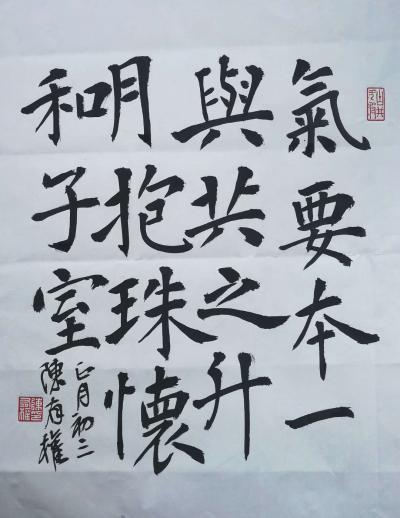 氣要本一
與共之升
月抱珠懷
和子室
正月初二
陳有權